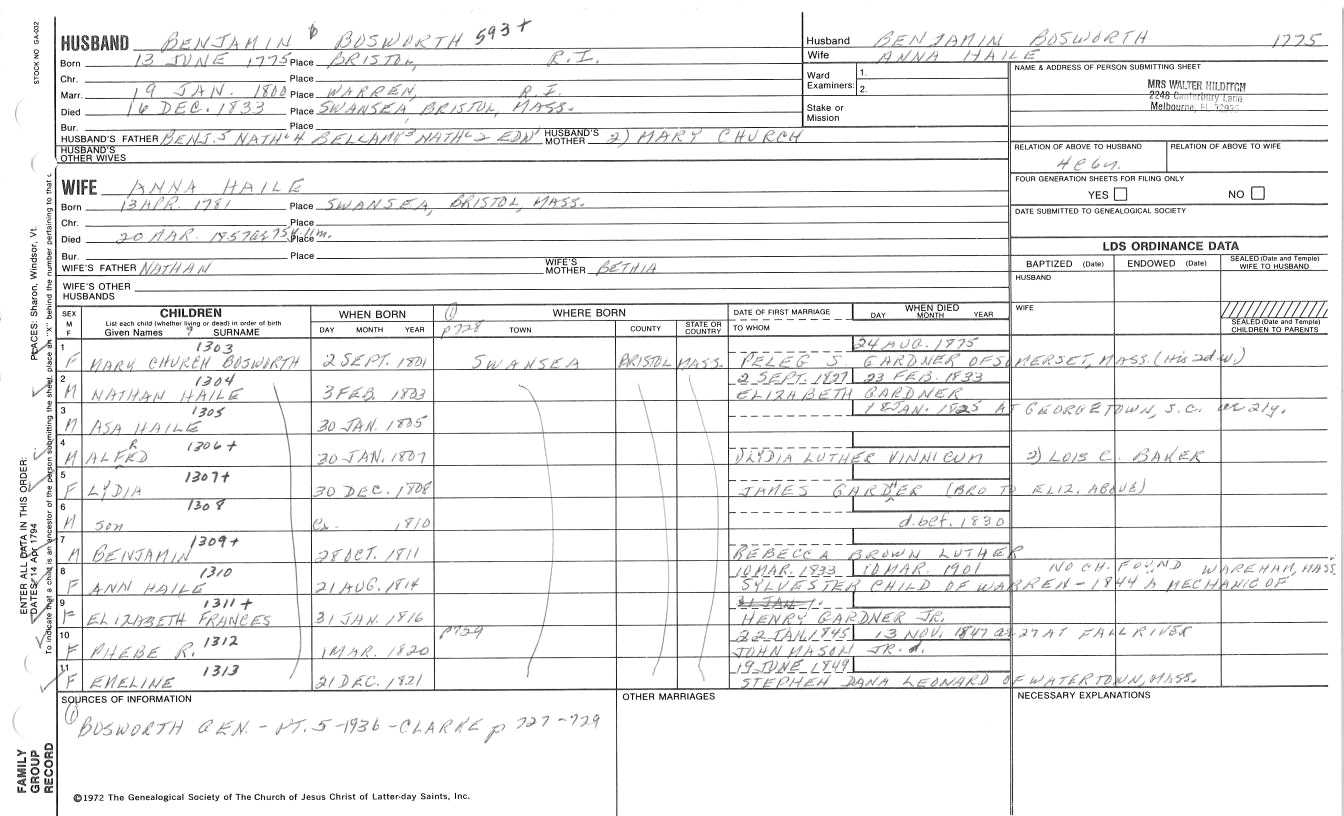 STOCK NO GA-032
HUSBAND BENJAMIN 6 BOSWORTH 593+
Born 13 JUNE 1775 Place BRISTOL, R.I.
Chr. Place
Marr. 19 JAN. 1800 Place WARREN, R.I.
Died 16 DEC. 1833 Place SWANSEA, BRISTOL, MASS.
Bur. Place
HUSBAND'S FATHER BENJ.5 NATHL 4 BELLAMY3 NATHL 2 EDW1 HUSBAND'S MOTHER 2) MARY CHURCH
HUSBAND'S OTHER WIVES
Husband BENJAMIN BOSWORTH 1775
Wife ANNA HAILE
Ward Examiners: 1. 2.
Stake or Mission
NAME & ADDRESS OF PERSON SUBMITTING SHEET
MRS WALTER HILDITCH
2248 Canterbury Lane
Melbourne, FL 32935
RELATION OF ABOVE TO HUSBAND RELATION OF ABOVE TO WIFE
4C6n.
FOUR GENERATION SHEETS FOR FILING ONLY
YES NO
DATE SUBMITTED TO GENEALOGICAL SOCIETY
WIFE ANNA HAILE
Born 13 APR. 1781 Place SWANSEA, BRISTOL, MASS.
Chr. Place
Died 20 MAR. 1857 Place
Bur. Place
WIFE'S FATHER NATHAN WIFE'S MOTHER BETHIA
WIFE'S OTHER HUSBANDS
LDS ORDINANCE DATA
BAPTIZED (Date) ENDOWED (Date) SEALED (Date and Temple) WIFE TO HUSBAND
HUSBAND
WIFE
SEALED (Date and Temple) CHILDREN TO PARENTS
SEX M F CHILDREN
List each child (whether living or dead) in order of birth
Given Names 7 SURNAME
WHEN BORN DAY MONTH YEAR
① p728 WHERE BORN TOWN COUNTY STATE OR COUNTRY
DATE OF FIRST MARRIAGE TO WHOM
WHEN DIED DAY MONTH YEAR
1 1303 24 AUG. 1875
F MARY CHURCH BOSWORTH 2 SEPT. 1801 SWANSEA BRISTOL MASS. PELEG S GARDNER OF SOMERSET, MASS. (His 2d w.)
2 1304 2 SEPT. 1827 23 FEB. 1833
M NATHAN HAILE 3 FEB. 1803 ELIZABETH GARDNER
3 1305 18 JAN. 1825 AT GEORGETOWN, S.C. ae 21y.
M ASA HAILE 30 JAN. 1805
4 1306+
M ALFRED 30 JAN. 1807 1) LYDIA LUTHER VINNICUM 2) LOIS C. BAKER
5 1307+
F LYDIA 30 DEC. 1808 JAMES GARDNER (BRO TO ELIZ. ABOVE)
6 1308
M Son Ca. 1810 d. bef. 1830
7 1309+
M BENJAMIN 28 OCT. 1811 REBECCA BROWN LUTHER
8 1310 10 MAR. 1833 10 MAR. 1901 NO CH. FOUND WAREHAM, MASS
F ANN HAILE 21 AUG. 1814 SYLVESTER CHILD OF WARREN - 1844 A MECHANIC OF
9 1311+ 31 JAN.
F ELIZABETH FRANCES 31 JAN. 1816 HENRY GARDNER JR.
10 1312 p729 22 JAN. 1845 13 NOV. 1847 ae 27 AT FALL RIVER
F PHEBE R. 1 MAR. 1820 JOHN MASON JR. d.
11 1313 19 JUNE 1849
F EMELINE 21 DEC. 1821 STEPHEN DANA LEONARD OF WATERTOWN, MASS.
SOURCES OF INFORMATION OTHER MARRIAGES NECESSARY EXPLANATIONS
① BOSWORTH GEN. - PT. 5 - 1936 - CLARKE p 727-729
©1972 The Genealogical Society of The Church of Jesus Christ of Latter-day Saints, Inc.
FAMILY GROUP RECORD
ENTER ALL DATA IN THIS ORDER:
DATES: 14 Apr 1794
PLACES: Sharon, Windsor, Vt.
To indicate that a child is an ancestor of the person submitting the sheet, place an "X" behind the number pertaining to that c